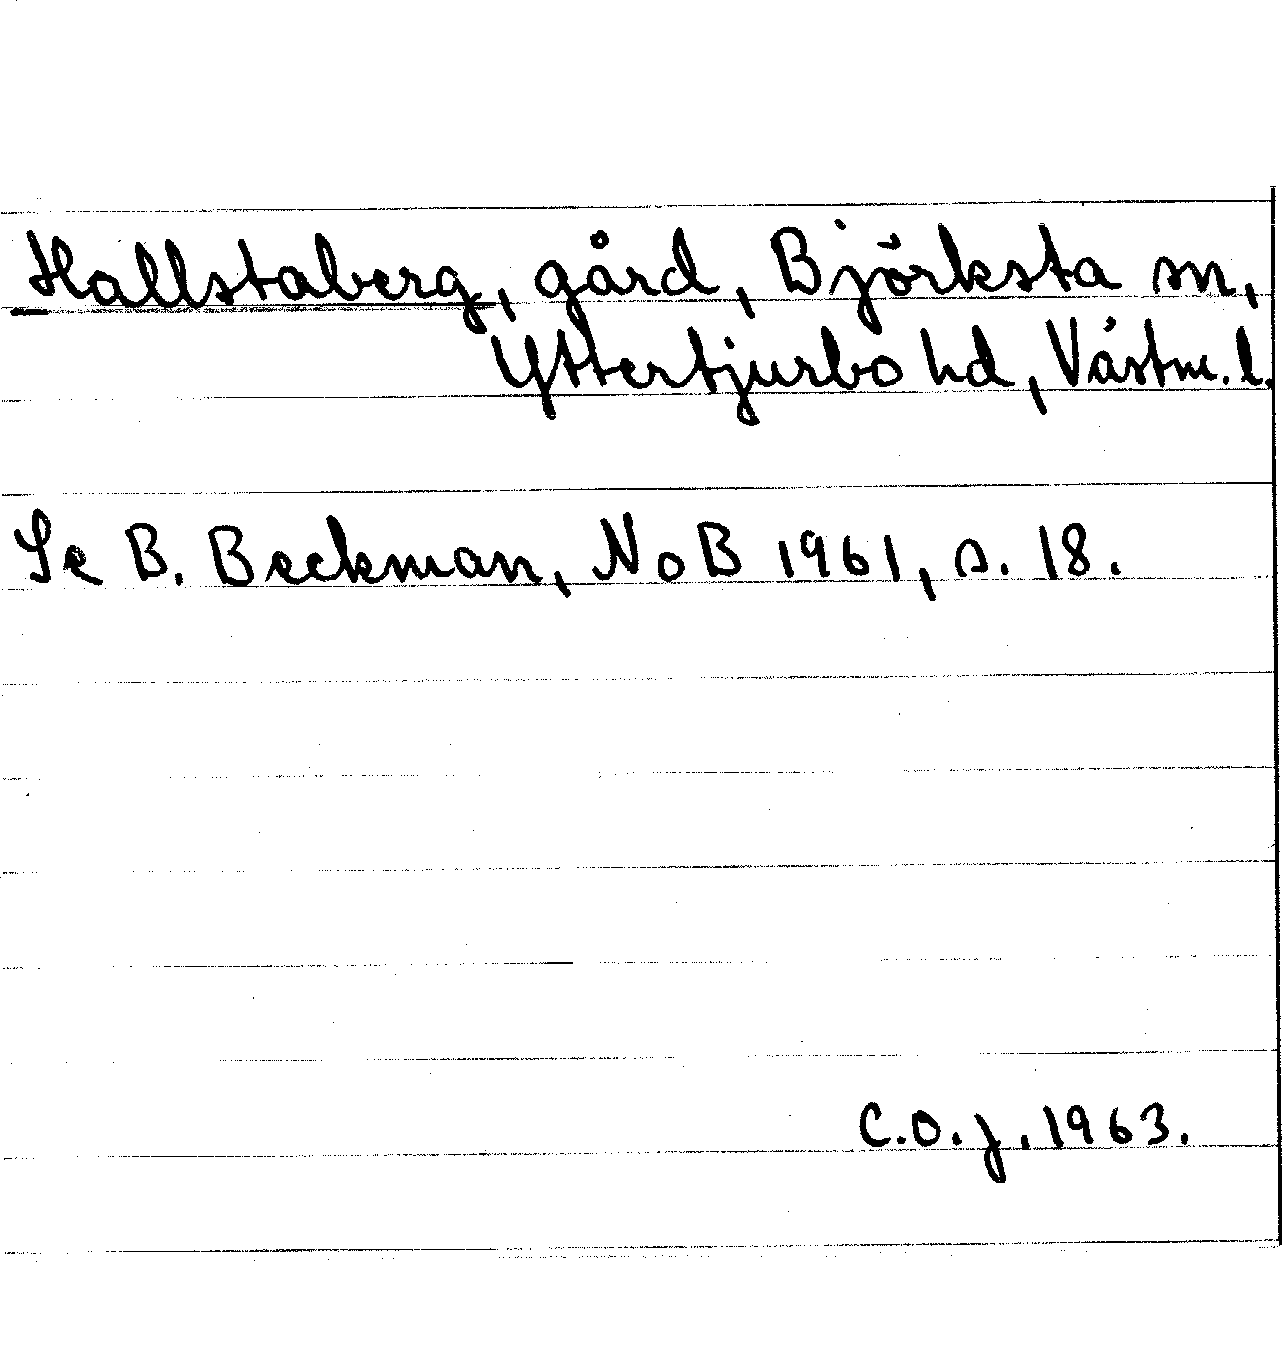 Hallstaberg, gård, Björksta sn,
Yttertjurbo hd, Västm. l.
Se B. Beckman, NoB 1961, s. 18.
C.O.J. 1963.